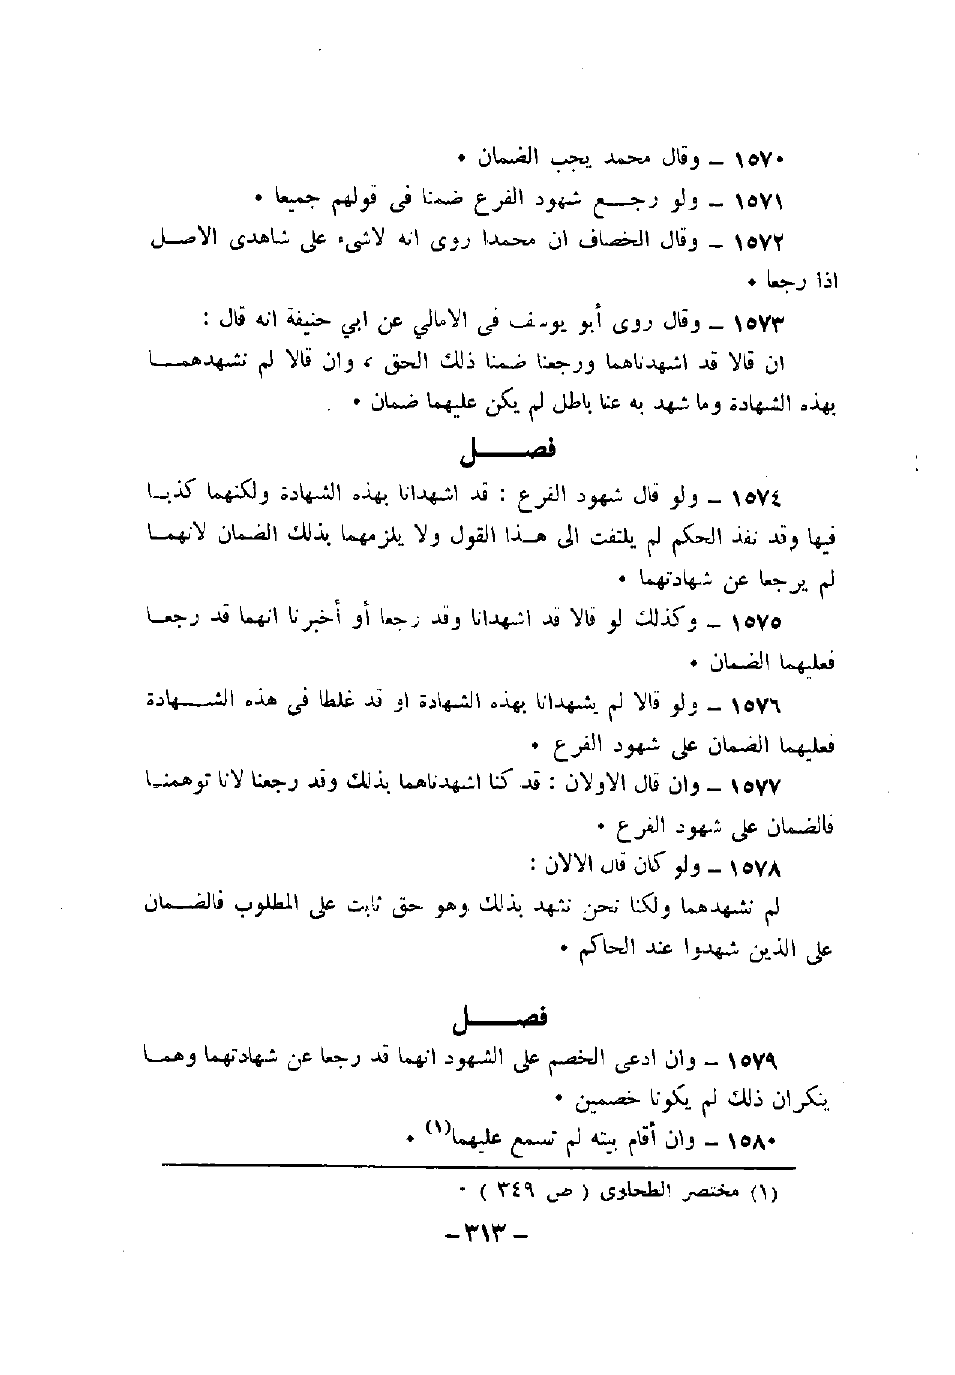 ١٥٧٠ ـ وقال محمد يجب الضمان ٠
١٥٧١ ـ ولو رجـــع شهود الفرع ضمنا فى قولهم جميعا ٠
١٥٧٢ ـ وقال الخصاف ان محمدا روى انه لاشىء على شاهدى الاصـل
اذا رجعا ٠
١٥٧٣ ـ وقال روى أبو يوسف فى الامالي عن ابي حنيفة انه قال :
ان قالا قد اشهدناهما ورجعنا ضمنا ذلك الحق ، وان قالا لم نشهدهمــا
بهذه الشهادة وما شهد به عنا باطل لم يكن عليهما ضمان ٠
فصــــل
١٥٧٤ ـ ولو قال شهود الفرع : قد اشهدانا بهذه الشهادة ولكنهما كذبـا
فيها وقد نفذ الحكم لم يلتفت الى هـذا القول ولا يلزمهما بذلك الضمان لانهمـا
لم يرجعا عن شهادتهما ٠
١٥٧٥ ـ وكذلك لو قالا قد اشهدانا وقد رجعا أو أخبرنا انهما قد رجعـا
فعليهما الضمان ٠
١٥٧٦ ـ ولو قالا لم يشهدانا بهذه الشهادة او قد غلطا فى هذه الشــهادة
فعليهما الضمان على شهود الفرع ٠
١٥٧٧ ـ وان قال الاولان : قد كنا اشهدناهما بذلك وقد رجعنا لانا توهمنـا
فالضمان على شهود الفرع ٠
١٥٧٨ ـ ولو كان قال الالان :
لم نشهدهما ولكنا نحن نشهد بذلك وهو حق ثابت على المطلوب فالضـمان
على الذين شهدوا عند الحاكم ٠
فصــــل
١٥٧٩ ـ وان ادعى الخصم على الشهود انهما قد رجعا عن شهادتهما وهمـا
ينكران ذلك لم يكونا خصمين ٠
١٥٨٠ ـ وان أقام بيته لم تسمع عليهما(١) ٠
(١) مختصر الطحاوى ( ص ٣٤٩ ) ٠
ـ ٣١٣ ـ